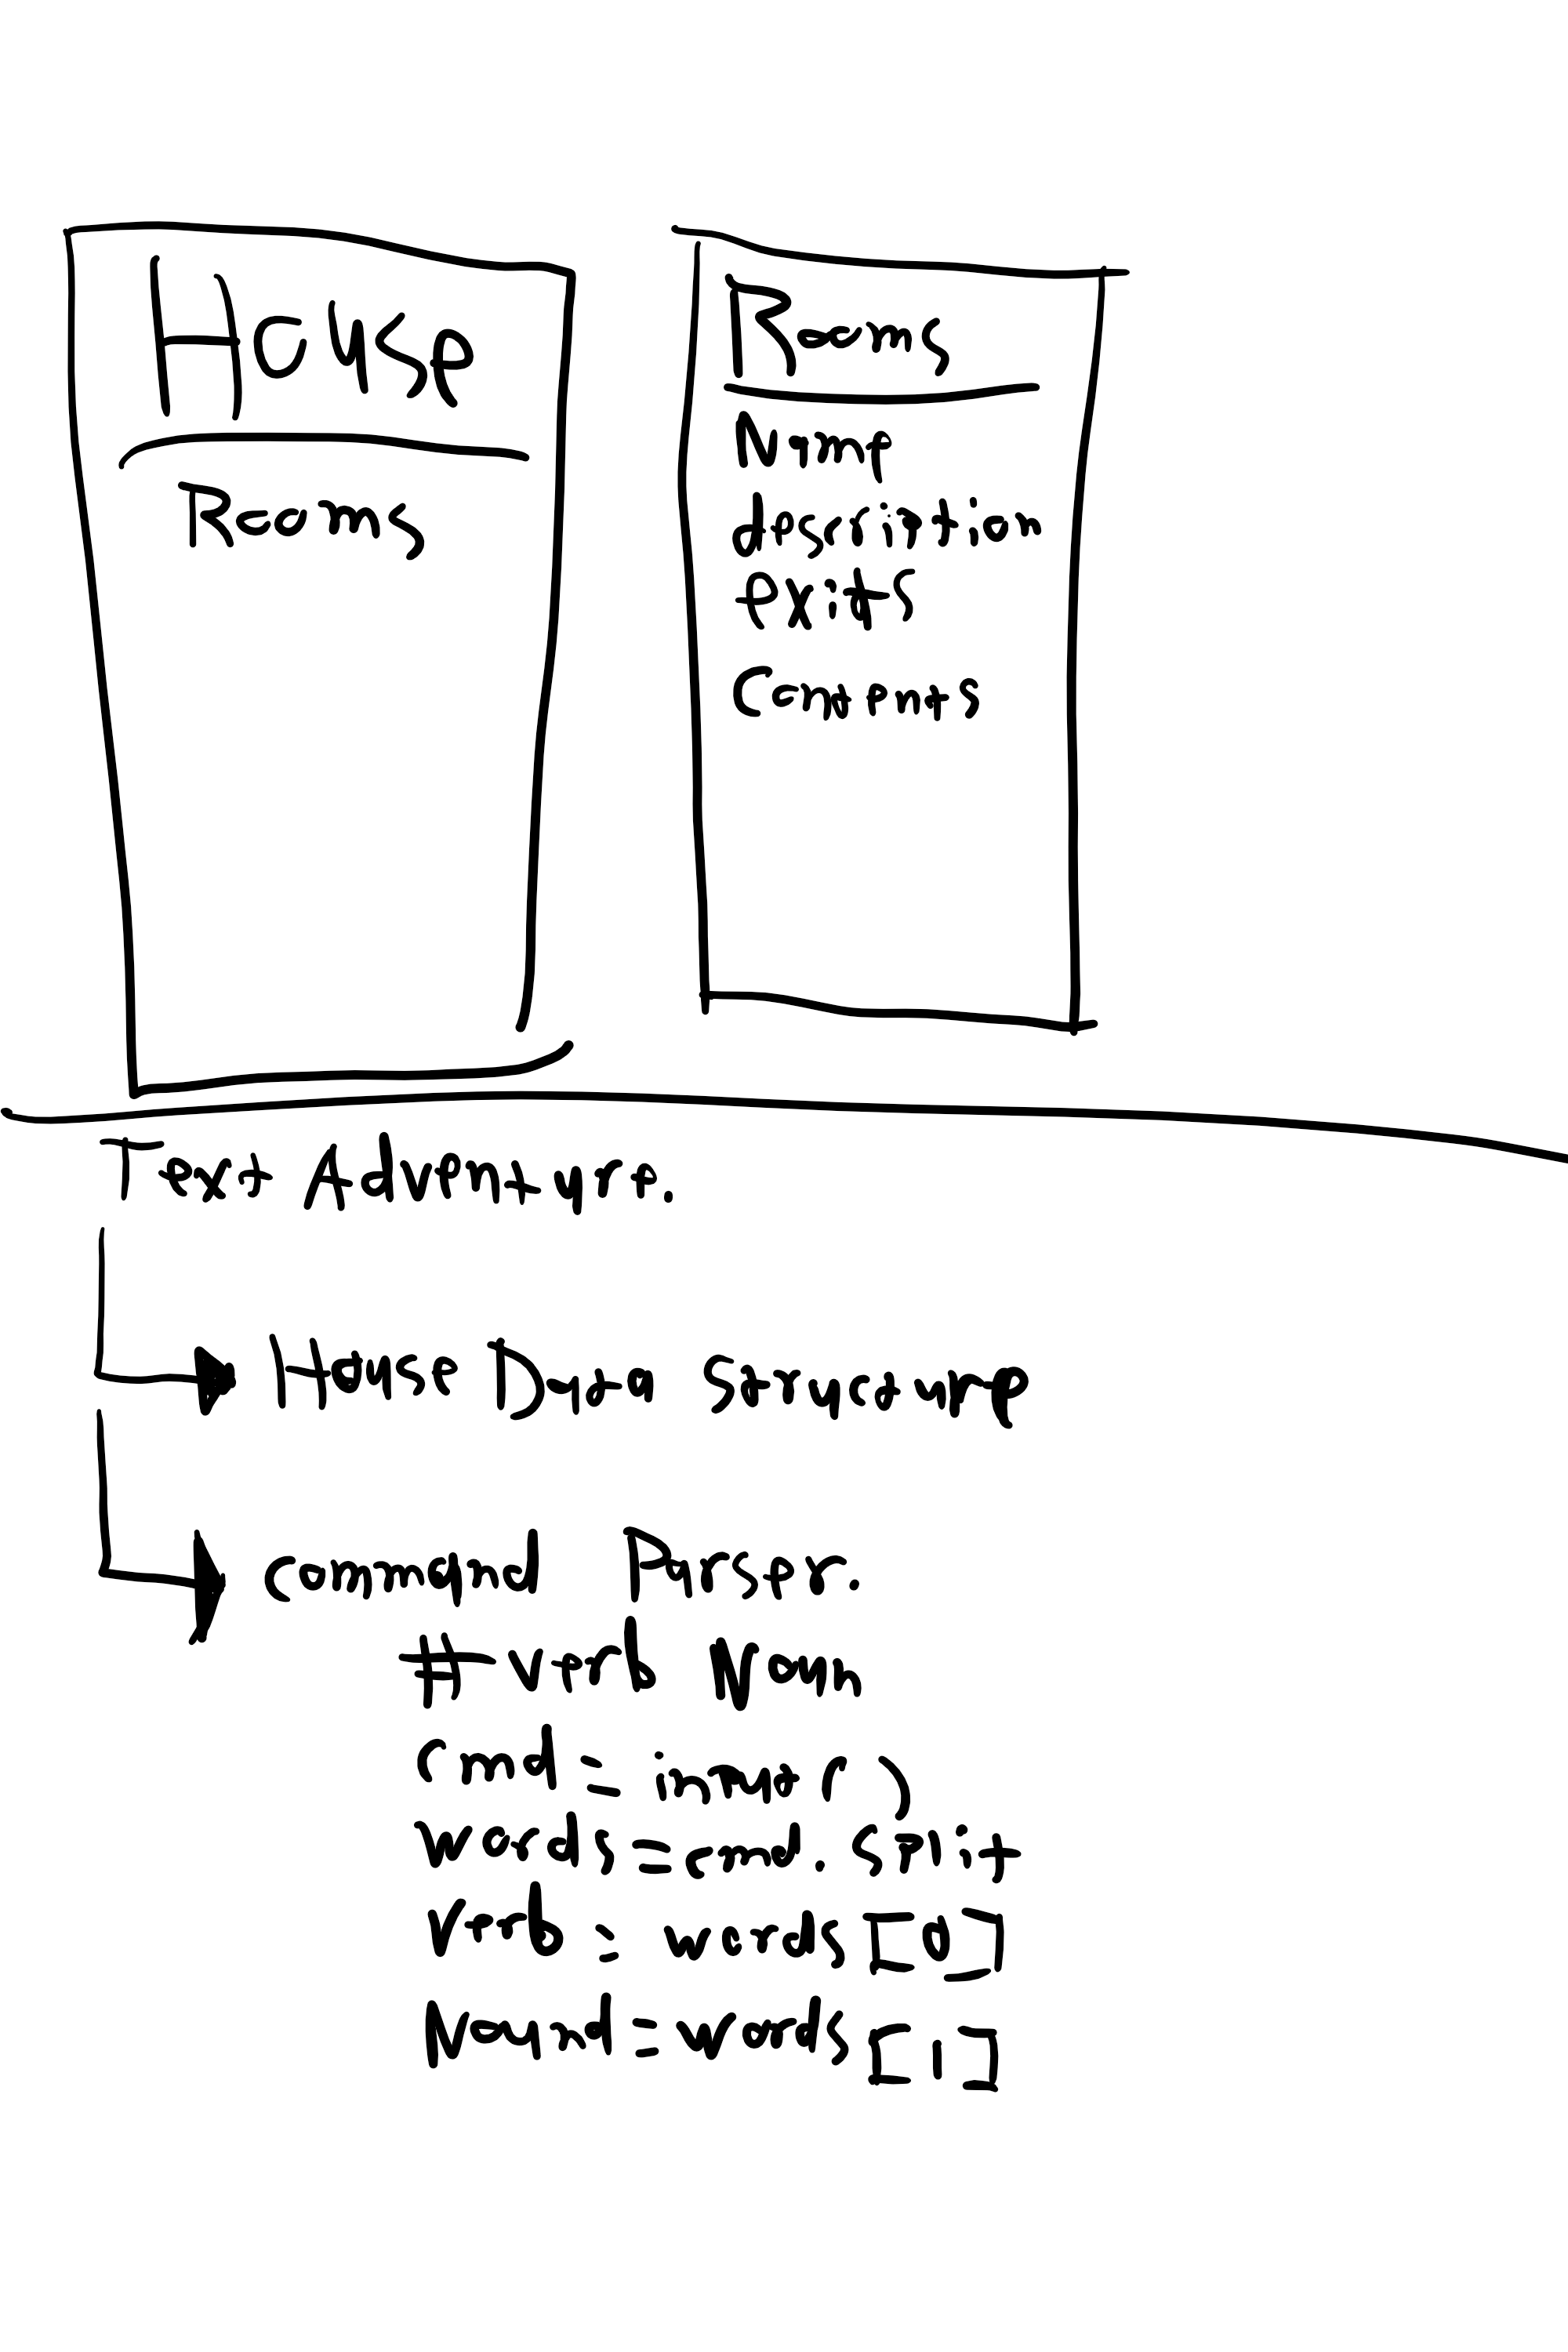 House
Rooms
Rooms
Name
description
exits
Contents
Text Adventure.
House Data Structure
command Parser.
# verb Noun
cmd = input()
words = cmd. Split
Verb = words[0]
Nound = words[1]